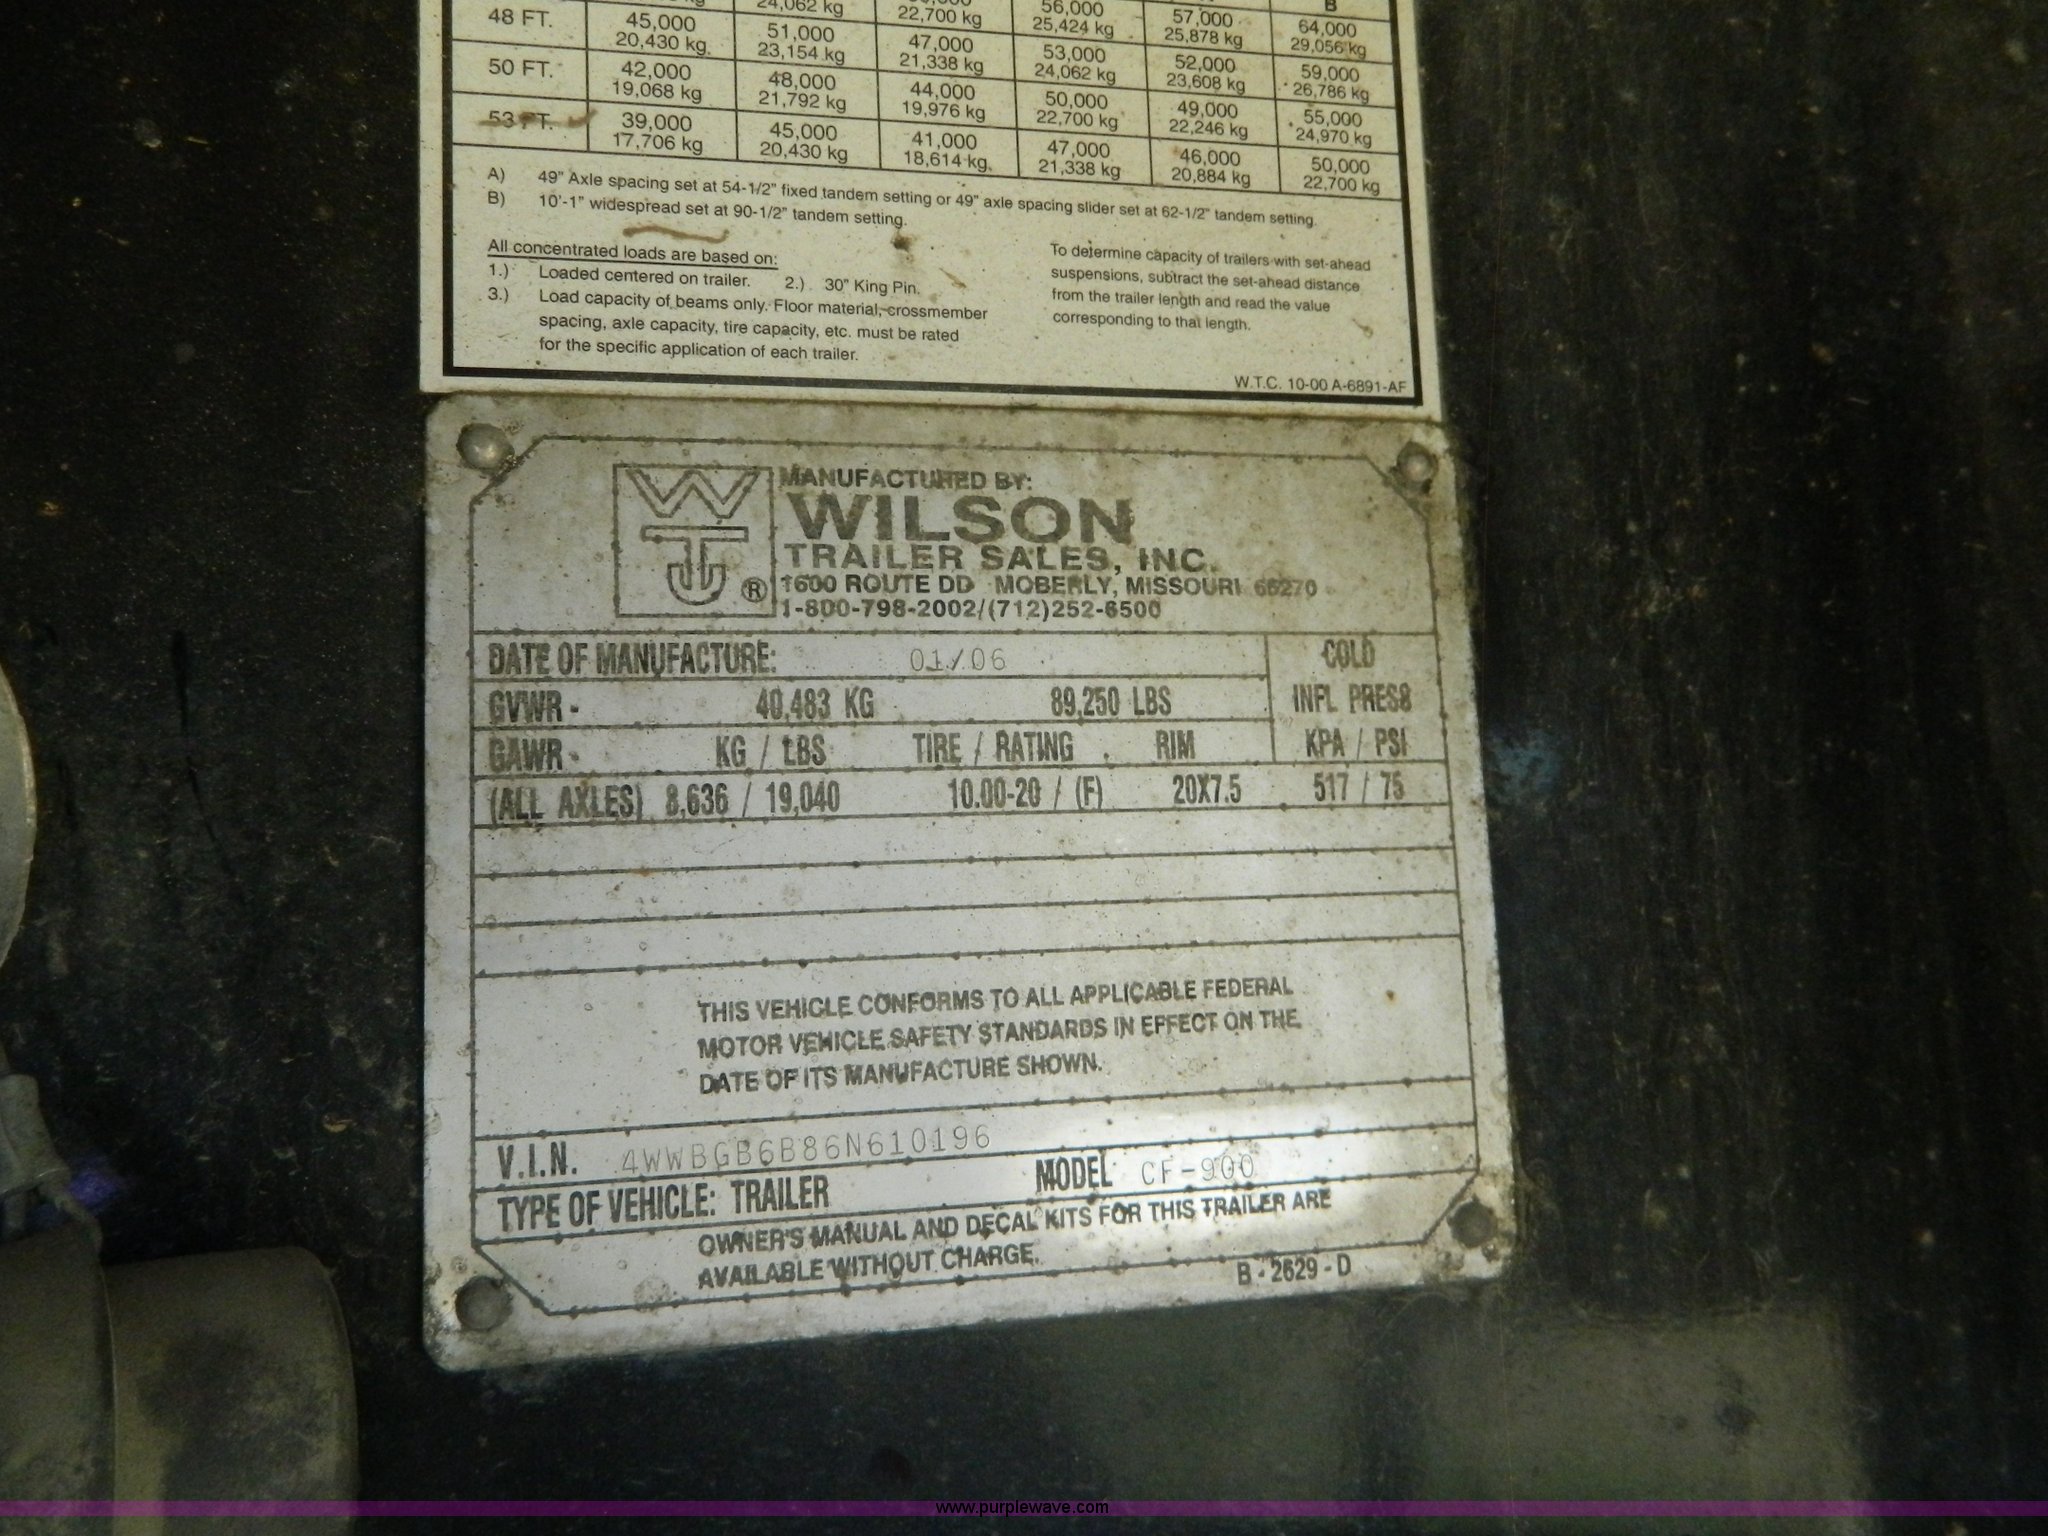 24,062 kg 22,700 kg 56,000 57,000 B
48 FT. 45,000 51,000 47,000 25,424 kg 25,878 kg 64,000
20,430 kg 23,154 kg 21,338 kg 53,000 52,000 29,056 kg
50 FT. 42,000 48,000 44,000 24,062 kg 23,608 kg 59,000
19,068 kg 21,792 kg 19,976 kg 50,000 49,000 26,786 kg
53 FT. 39,000 45,000 41,000 22,700 kg 22,246 kg 55,000
17,706 kg 20,430 kg 18,614 kg 47,000 46,000 24,970 kg
21,338 kg 20,884 kg 50,000
22,700 kg
A) 49" Axle spacing set at 54-1/2" fixed tandem setting or 49" axle spacing slider set at 62-1/2" tandem setting.
B) 10'-1" widespread set at 90-1/2" tandem setting.
All concentrated loads are based on:
1.) Loaded centered on trailer. 2.) 30" King Pin.
3.) Load capacity of beams only. Floor material, crossmember
spacing, axle capacity, tire capacity, etc. must be rated
for the specific application of each trailer.
To determine capacity of trailers with set-ahead
suspensions, subtract the set-ahead distance
from the trailer length and read the value
corresponding to that length.
W.T.C. 10-00 A-6891-AF
WTJ ®
MANUFACTURED BY:
WILSON
TRAILER SALES, INC.
1600 ROUTE DD MOBERLY, MISSOURI 65270
1-800-798-2002/(712)252-6500
DATE OF MANUFACTURE: 01/06 COLD
GVWR - 40,483 KG 89,250 LBS INFL PRESS
GAWR - KG / LBS TIRE / RATING RIM KPA / PSI
(ALL AXLES) 8,636 / 19,040 10.00-20 / (F) 20X7.5 517 / 75
THIS VEHICLE CONFORMS TO ALL APPLICABLE FEDERAL
MOTOR VEHICLE SAFETY STANDARDS IN EFFECT ON THE
DATE OF ITS MANUFACTURE SHOWN.
V.I.N. 4WWBGB6B86N610196
TYPE OF VEHICLE: TRAILER MODEL CF-900
OWNER'S MANUAL AND DECAL KITS FOR THIS TRAILER ARE
AVAILABLE WITHOUT CHARGE.
B - 2629 - D
www.purplewave.com